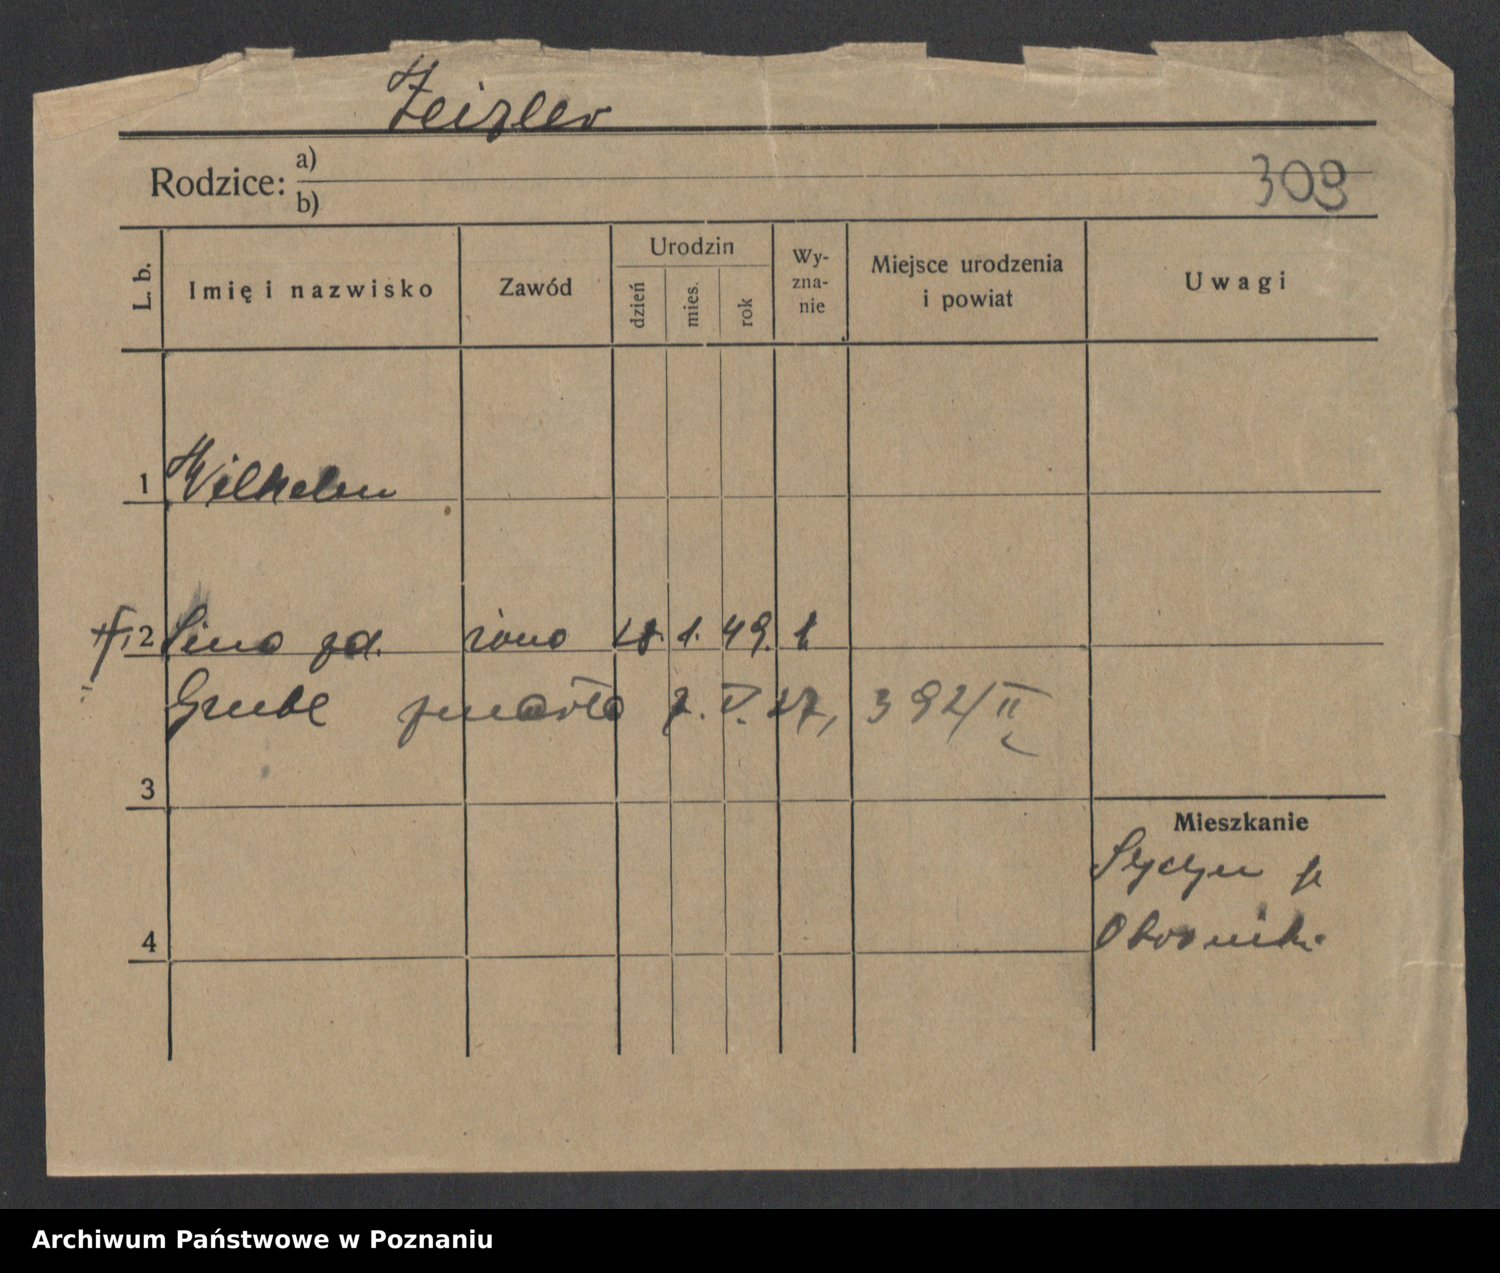 Zeizler
Rodzice: a)
b)
309
L. b.
Imię i nazwisko
Zawód
Urodzin
dzień
mies.
rok
Wy-
zna-
nie
Miejsce urodzenia
i powiat
Uwagi
1 Wilhelm
2 zd. żona 1. 49.
Grube zmarła 7. V. 27, 392/II
3
Mieszkanie
Obornik
4
Archiwum Państwowe w Poznaniu